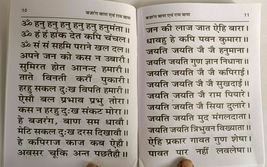 10
बजरंग बाण एवं राम स्तवन
ॐ हनु हनु हनु हनु हनु हनुमंता।
ॐ हं हं हांक देत कपि चंचल।
ॐ सं सं सहमि पराने खल दल।
अपने जन को कस न उबारौ।
सुमिरत होत आनन्द हमारौ।
ताते बिनती करौं पुकारी।
हरहु सकल दुःख बिपति हमारी।
ऐसौ बल प्रभाव प्रभु तोरा।
कस न हरहु दुःख संकट मोरा।
हे बजरंग, बाण सम धावौ।
मेटि सकल दुःख दरस दिखावौ।
हे कपिराज काज कब ऐहौ।
अवसर चूकि अन्त पछतैहौ।
11
जन की लाज जात ऐहि बारा।
धावहु हे कपि पवन कुमारा।
जयति जयति जै जै हनुमाना।
जयति जयति गुण ज्ञान निधाना।
जयति जयति जै जै कपिराई।
जयति जयति जै जै सुखदाई।
जयति जयति जै राम पियारे।
जयति जयति जै सिया दुलारे।
जयति जयति मुद मंगलदाता।
जयति जयति त्रिभुवन विख्याता।
ऐहि प्रकार गावत गुण शेषा।
पावत पार नहीं लवलेषा।